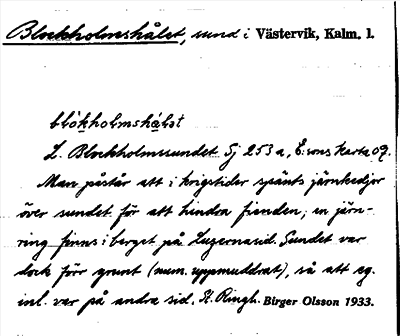 Blockholmshålet, sund i Västervik, Kalm. l.
blòkholmshålet
L. Blockholmssundet Sj 253 a, E:sons karta 09.
Man påstår att i krigstider spänts järnkedjor
över sundet för att hindra fienden; en järn-
ring finns i berget på Luzernasid. Sundet var
dock förr grunt (num. uppmuddrat), så att eg.
inl. var på andra sid. K. Ringh. Birger Olsson 1933.